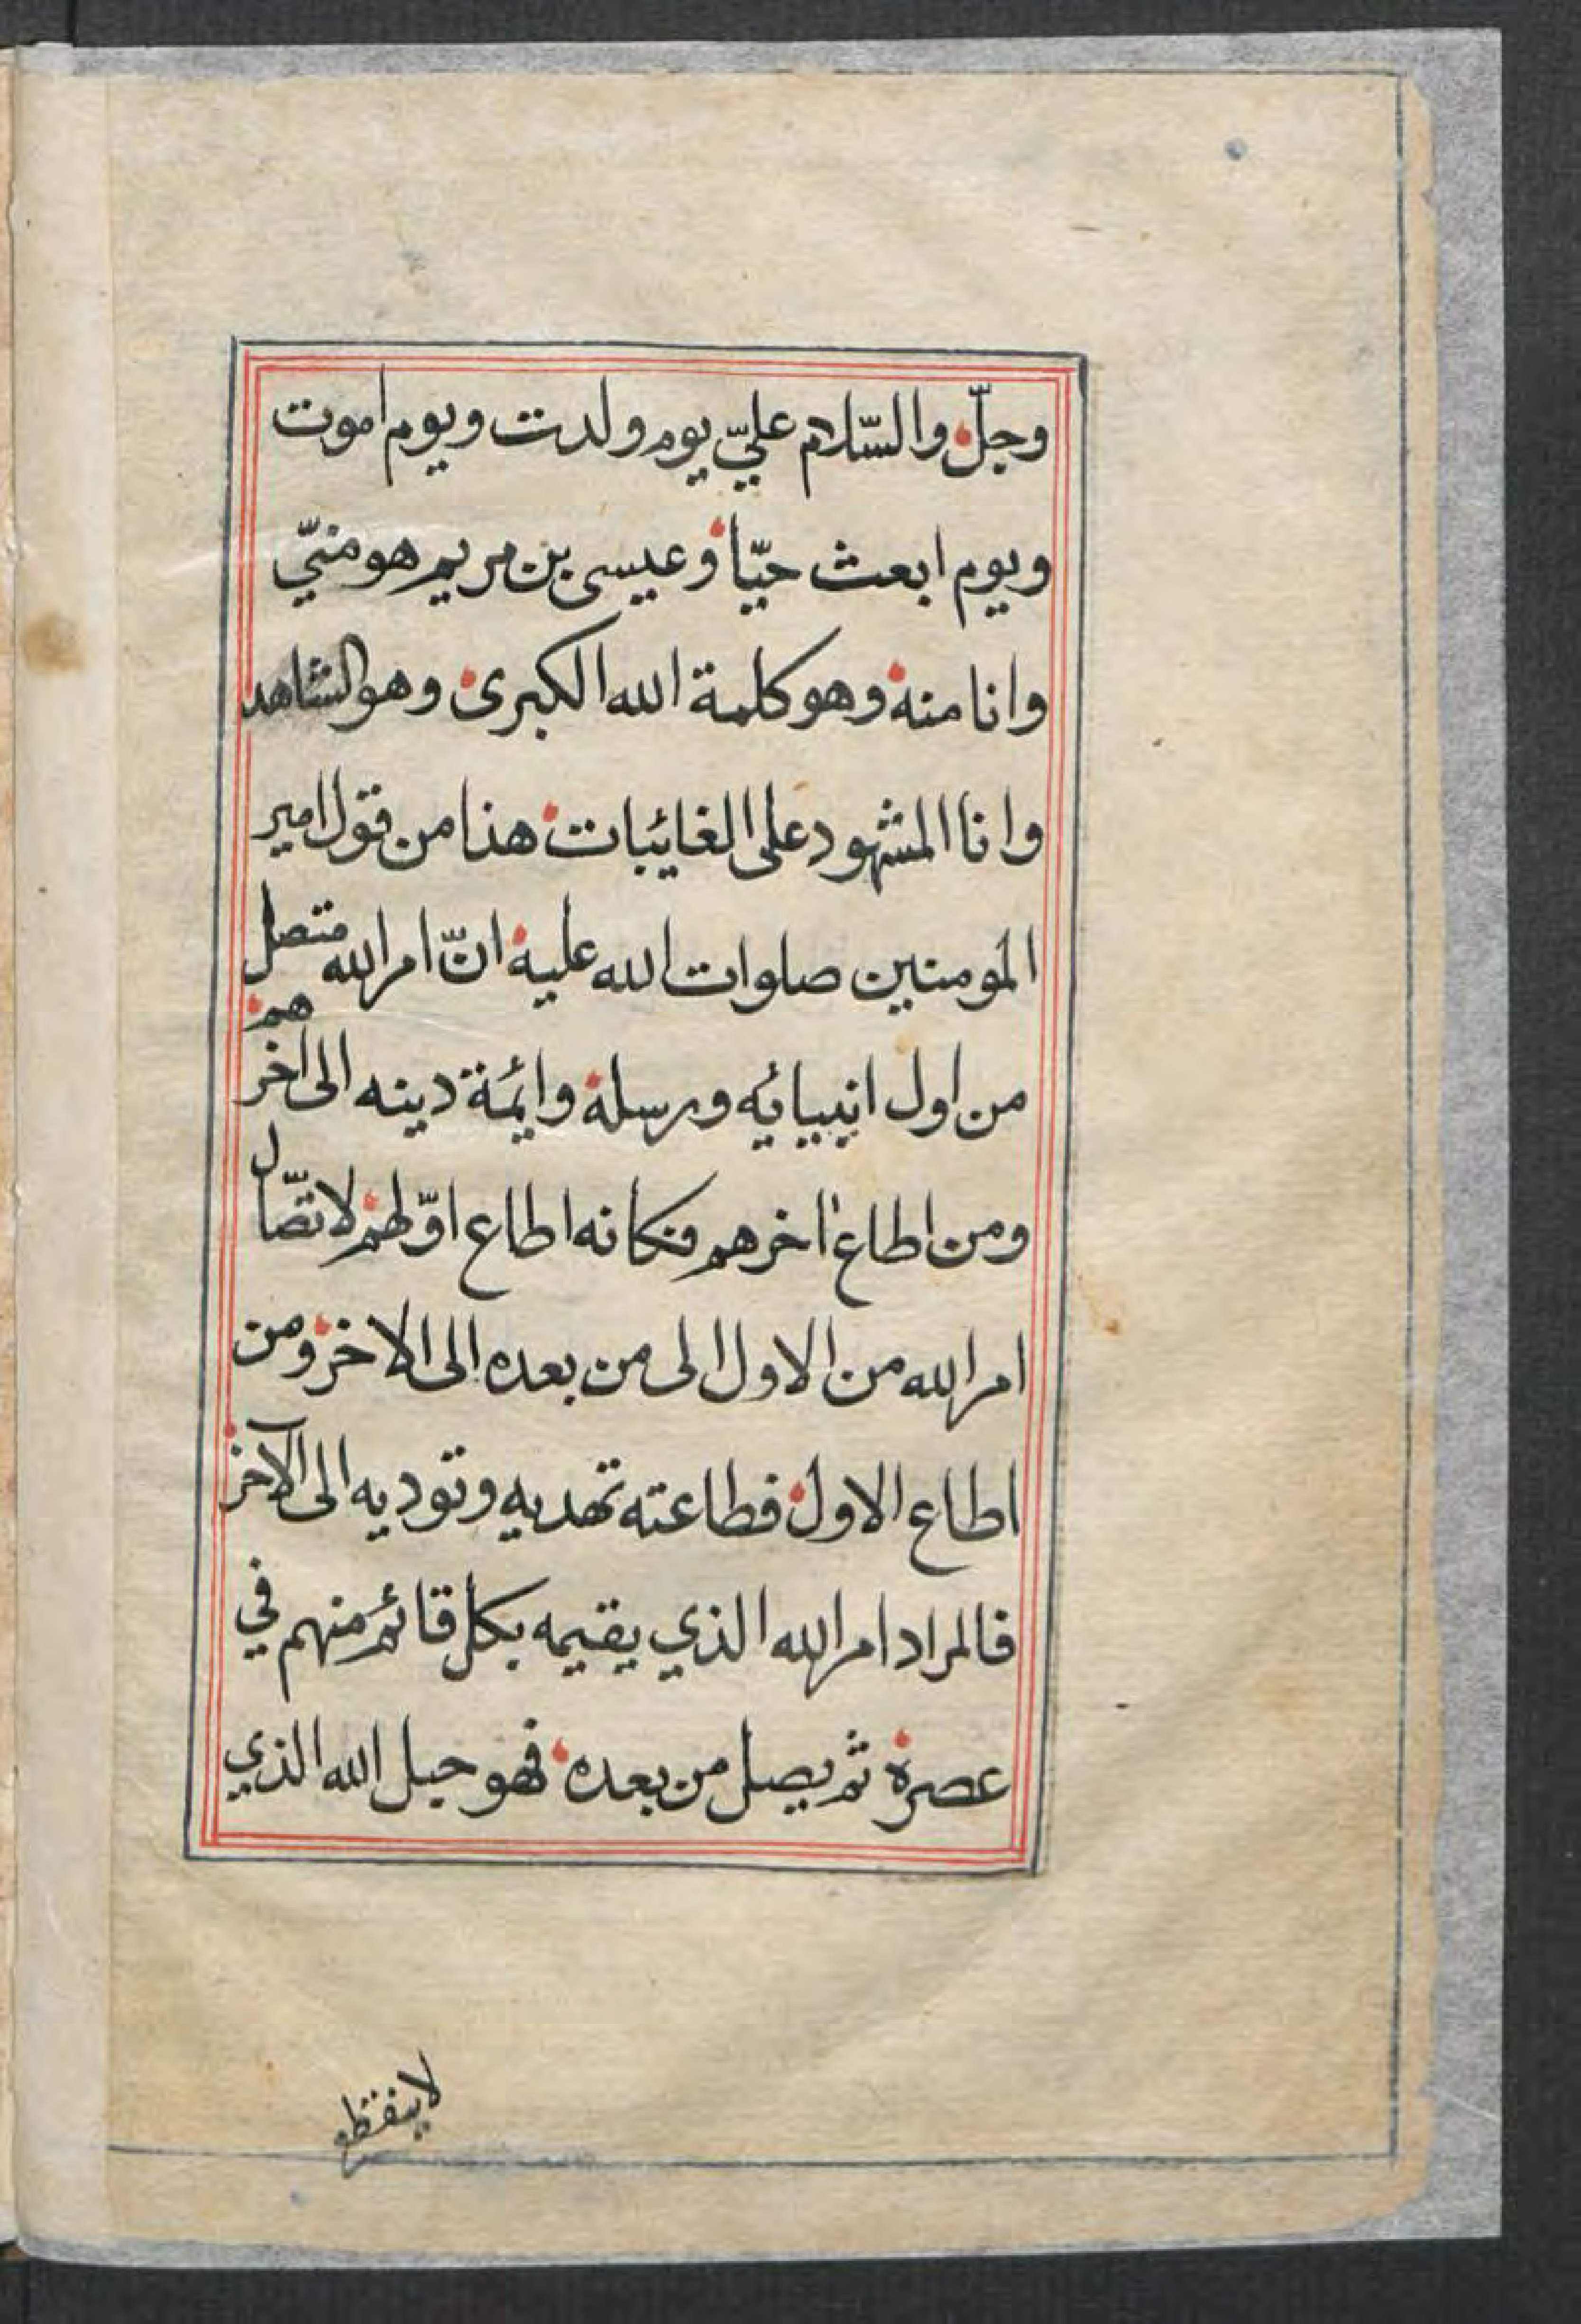 وجلّ والسّلام عليّ يوم ولدت ويوم اموت
ويوم ابعث حيّا وعيسى بن مريم هو منيّ
وانا منه وهو كلمة الله الكبرى وهو الشاهد
وانا المشهود على الغائبات هذا من قول امير
المومنين صلوات الله عليه انّ امر الله متصل
من اول انبيائه ورسله وائمة دينه الى اخر هم
ومن اطاع اخرهم فكانه اطاع اوّلهم لاتصّال
امر الله من الاول الى من بعده الى الاخر ومن
اطاع الاول فطاعته تهديه وتوديه الى الآخر
فالمراد امر الله الذي يقيمه بكل قائم منهم في
عصره ثم يصل من بعده فهو حبل الله الذي